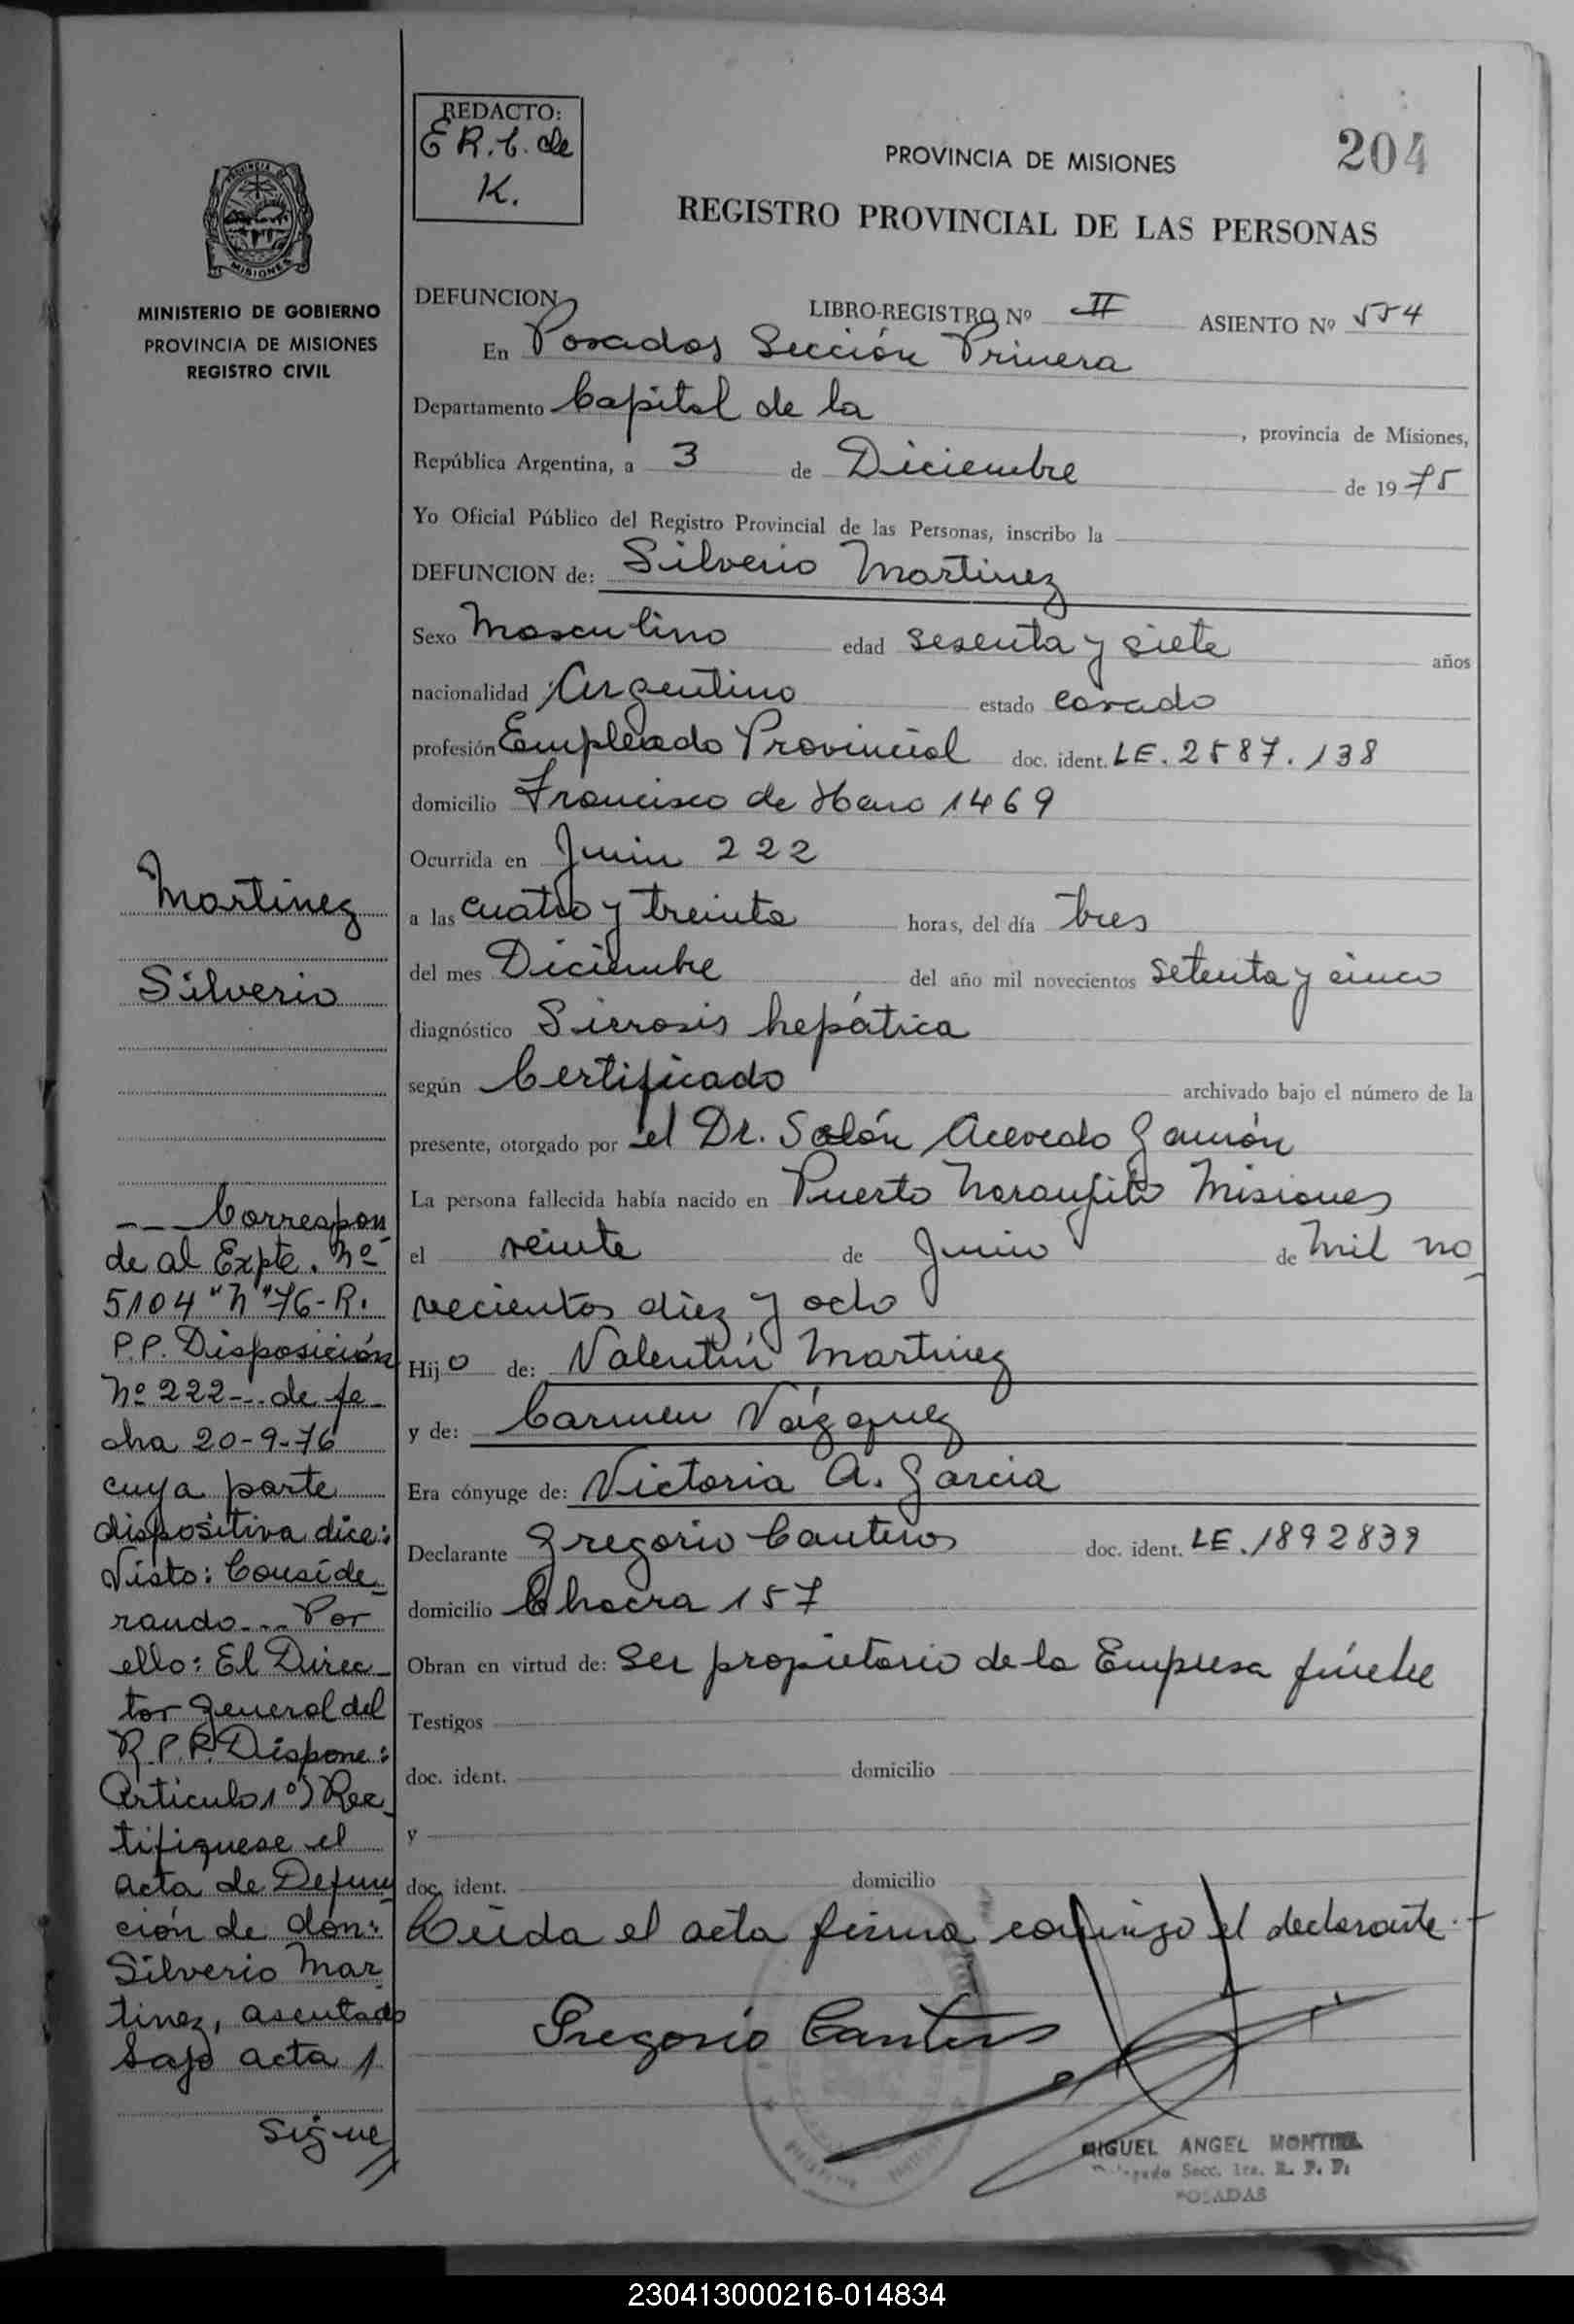 REDACTO:
E R. C. de
K.
PROVINCIA DE MISIONES
204
REGISTRO PROVINCIAL DE LAS PERSONAS
MISIONES
MINISTERIO DE GOBIERNO
PROVINCIA DE MISIONES
REGISTRO CIVIL
DEFUNCION
LIBRO-REGISTRO Nº II ASIENTO Nº 554
En Posadas Sección Primera
Departamento Capital de la , provincia de Misiones,
República Argentina, a 3 de Diciembre de 1975
Yo Oficial Público del Registro Provincial de las Personas, inscribo la
DEFUNCION de: Silverio Martinez
Sexo Masculino edad sesenta y siete años
nacionalidad Argentino estado casado
profesión Empleado Provincial doc. ident. LE. 2587.138
domicilio Francisco de Haro 1469
Ocurrida en Junin 222
a las cuatro y treinta horas, del día tres
del mes Diciembre del año mil novecientos setenta y cinco
diagnóstico Sierosis hepática
según Certificado archivado bajo el número de la
presente, otorgado por el Dr. Solón Acevedo Gamón
La persona fallecida había nacido en Puerto Naranjito Misiones
el veinte de Junio de Mil no
vecientos diez y ocho
Hijo de: Valentín Martinez
y de: Carmen Vázquez
Era cónyuge de: Victoria A. Garcia
Declarante Gregorio Canteros doc. ident. LE. 1892839
domicilio Chacra 157
Obran en virtud de: Ser propietario de la Empresa fúnebre
Testigos
doc. ident. domicilio
y
doc. ident. domicilio
Leida el acta firma conmigo el declarante.-
Gregorio Canteros
MIGUEL ANGEL MONTIEL
Secc. 1ra. R. P. P.
POSADAS
Martinez
Silverio
--- Correspon
de al Expte. Nº
5104 "N" 76-R.
P.P. Disposición
Nº 222-.. de fe_
cha 20-9-76
cuya parte
dispositiva dice:
Visto: Conside_
rando... Por
ello: El Direc_
tor General del
R.P.P. Dispone:
Articulo 1º) Rec_
tifiquese el
acta de Defun_
ción de don:
Silverio Mar_
tinez, asentado
bajo acta 1
Sigue
230413000216-014834